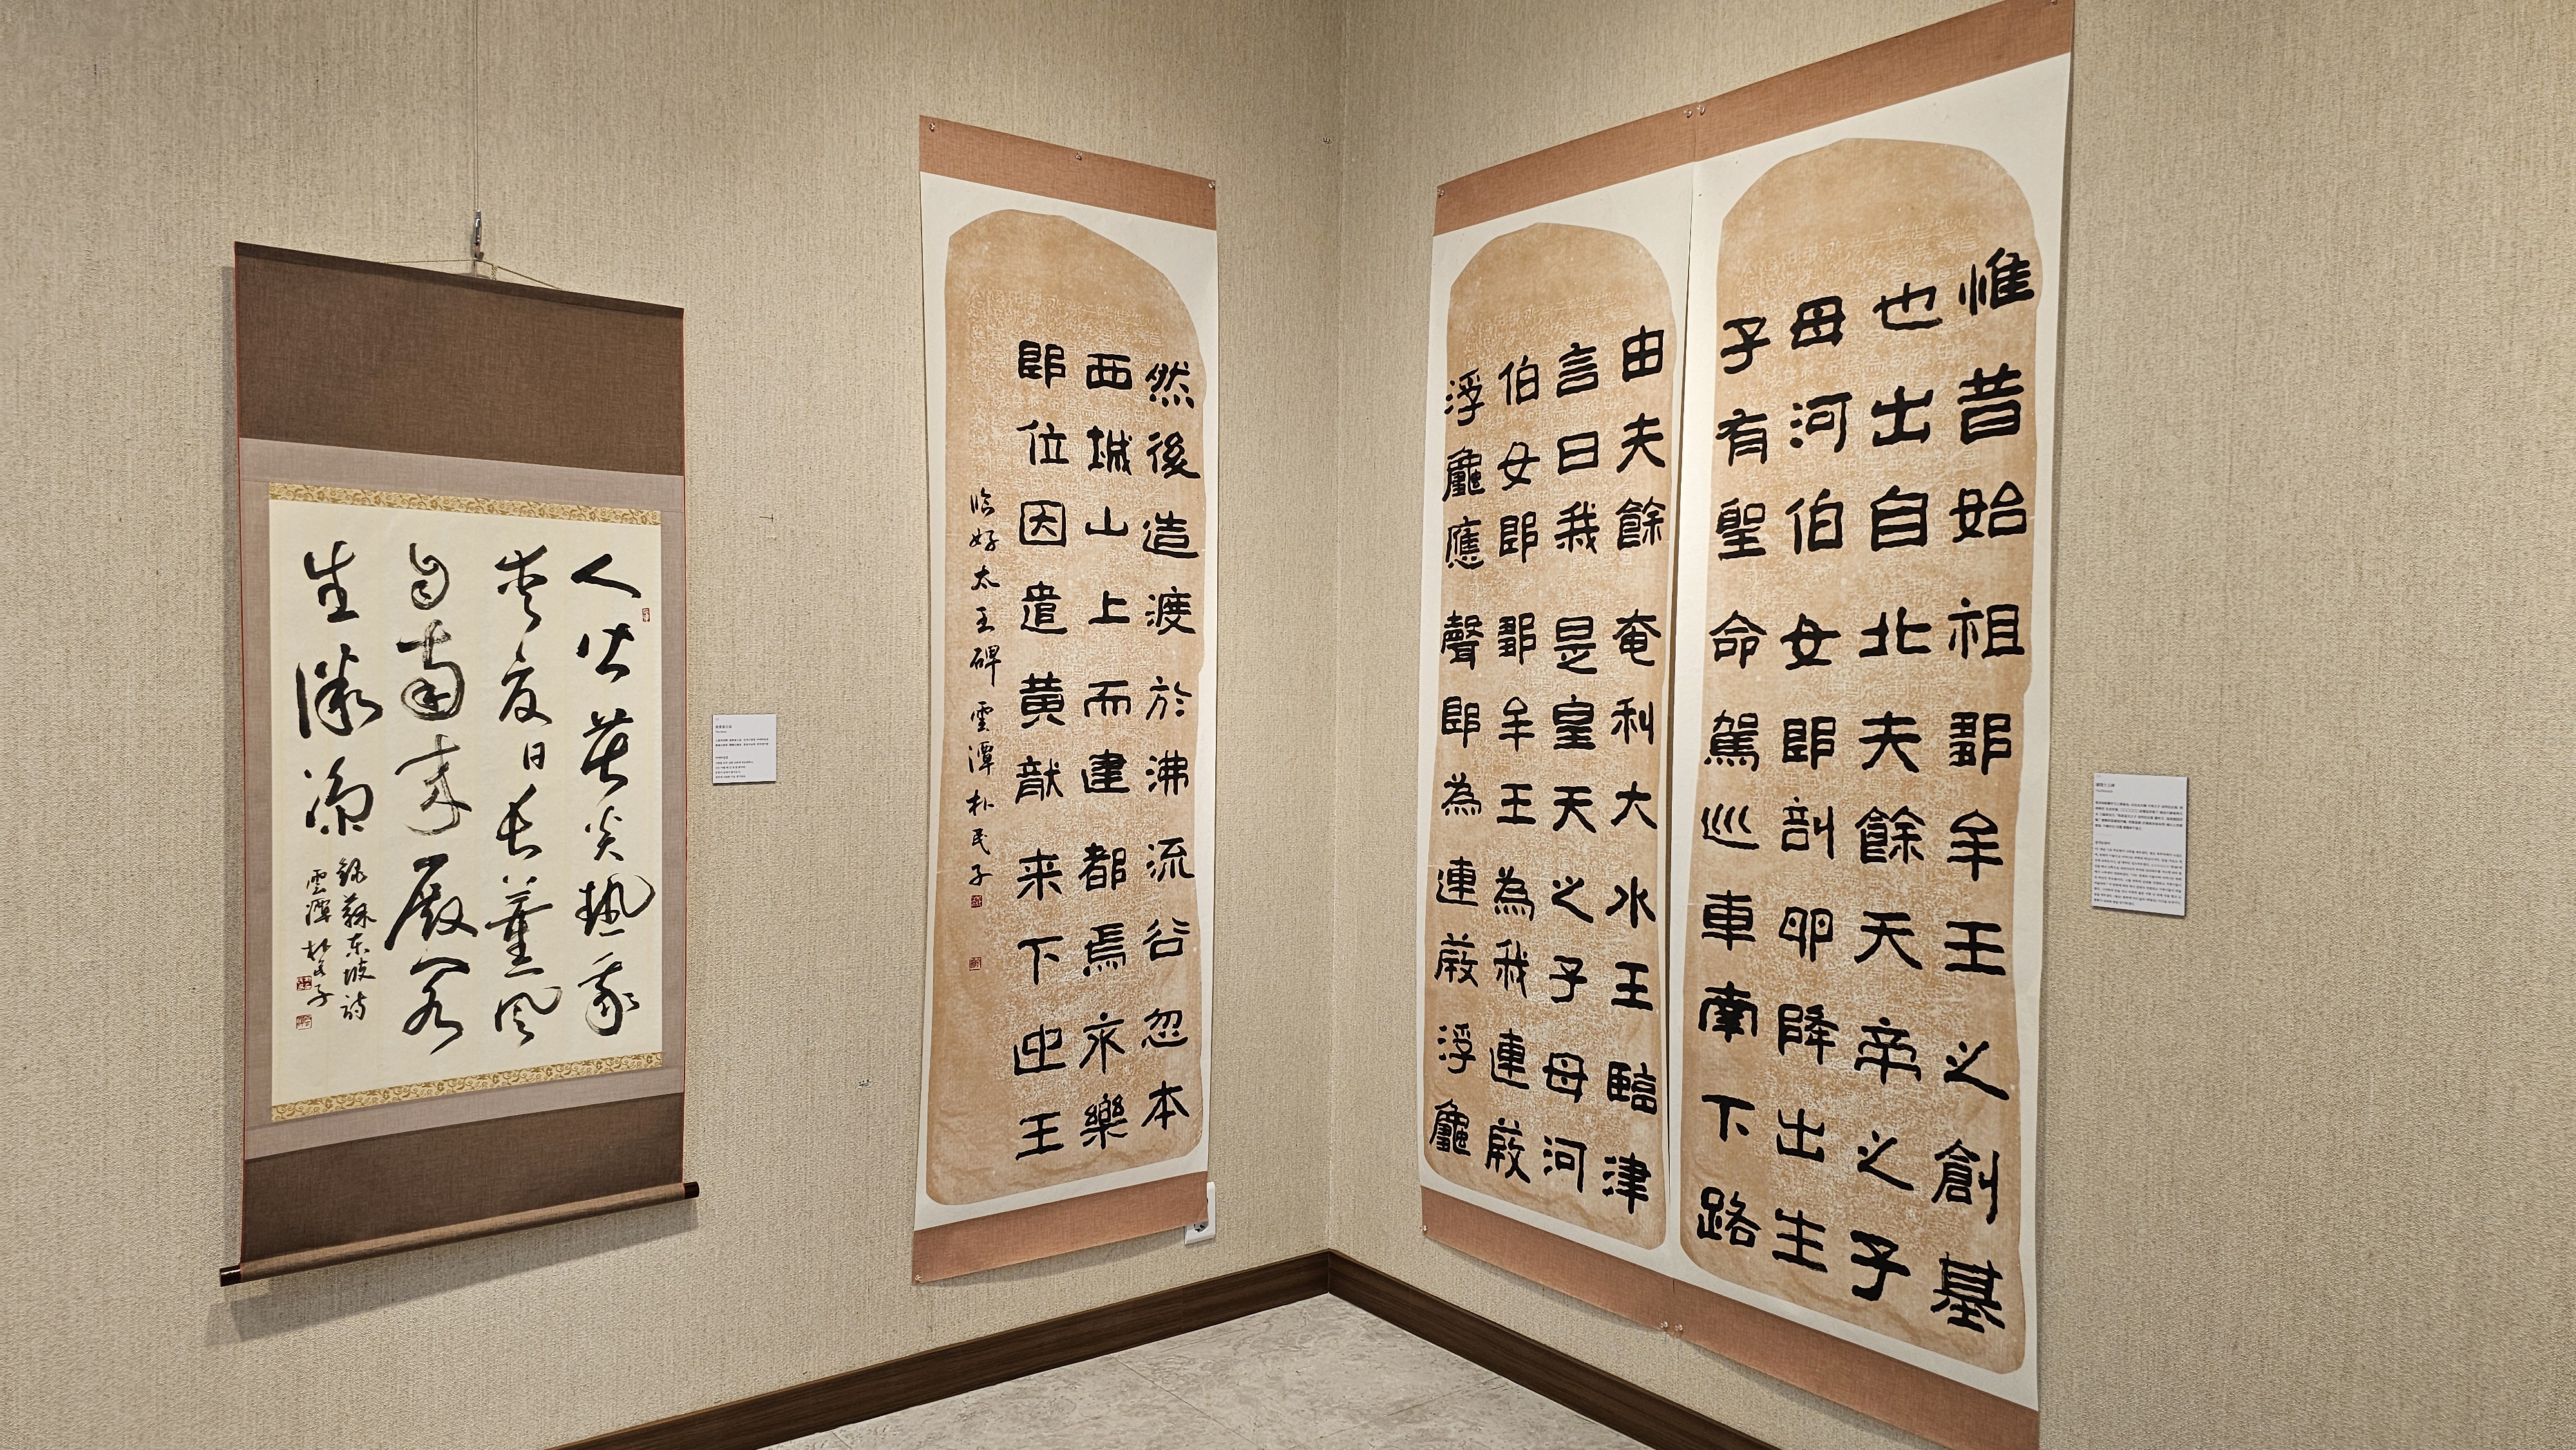 惟昔始祖鄒牟王之創基
也出自北夫餘天帝之子
母河伯女郎剖卵降出生
子有聖命駕巡車南下路
由夫餘奄利大水王臨津
言曰我是皇天之子母河
伯女郎鄒牟王為我連葭
浮龜應聲即為連葭浮龜
然後造渡於沸流谷忽本
西城山上而建都焉永樂
即位因遣黃龍来下迎王
臨好太王碑 雲潭 朴民子
人皆苦炎熱我
愛夏日長薰風
自南來殿閣
生微涼
錄蘇東坡詩
雲潭 朴民子